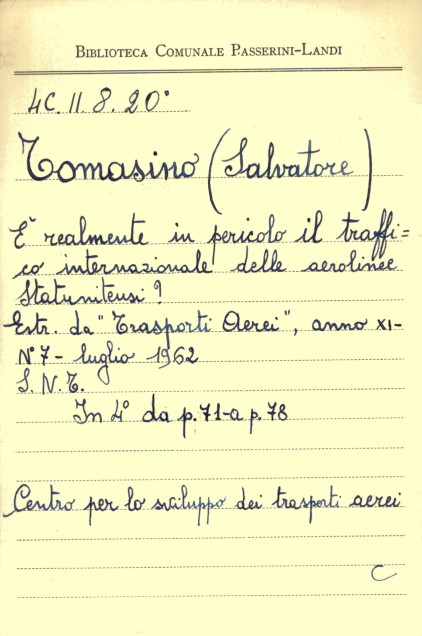 BIBLIOTECA COMUNALE PASSERINI-LANDI
4C. II. 8. 20°
Tomasino (Salvatore)
E' realmente in pericolo il traffi=
co internazionale delle aerolinee
Statunitensi?
Estr. da "Trasporti Aerei", anno XI-
N° 7 - luglio 1962
S. N. T.
In 4° da p. 71-a p. 78
Centro per lo sviluppo dei trasporti aerei
C